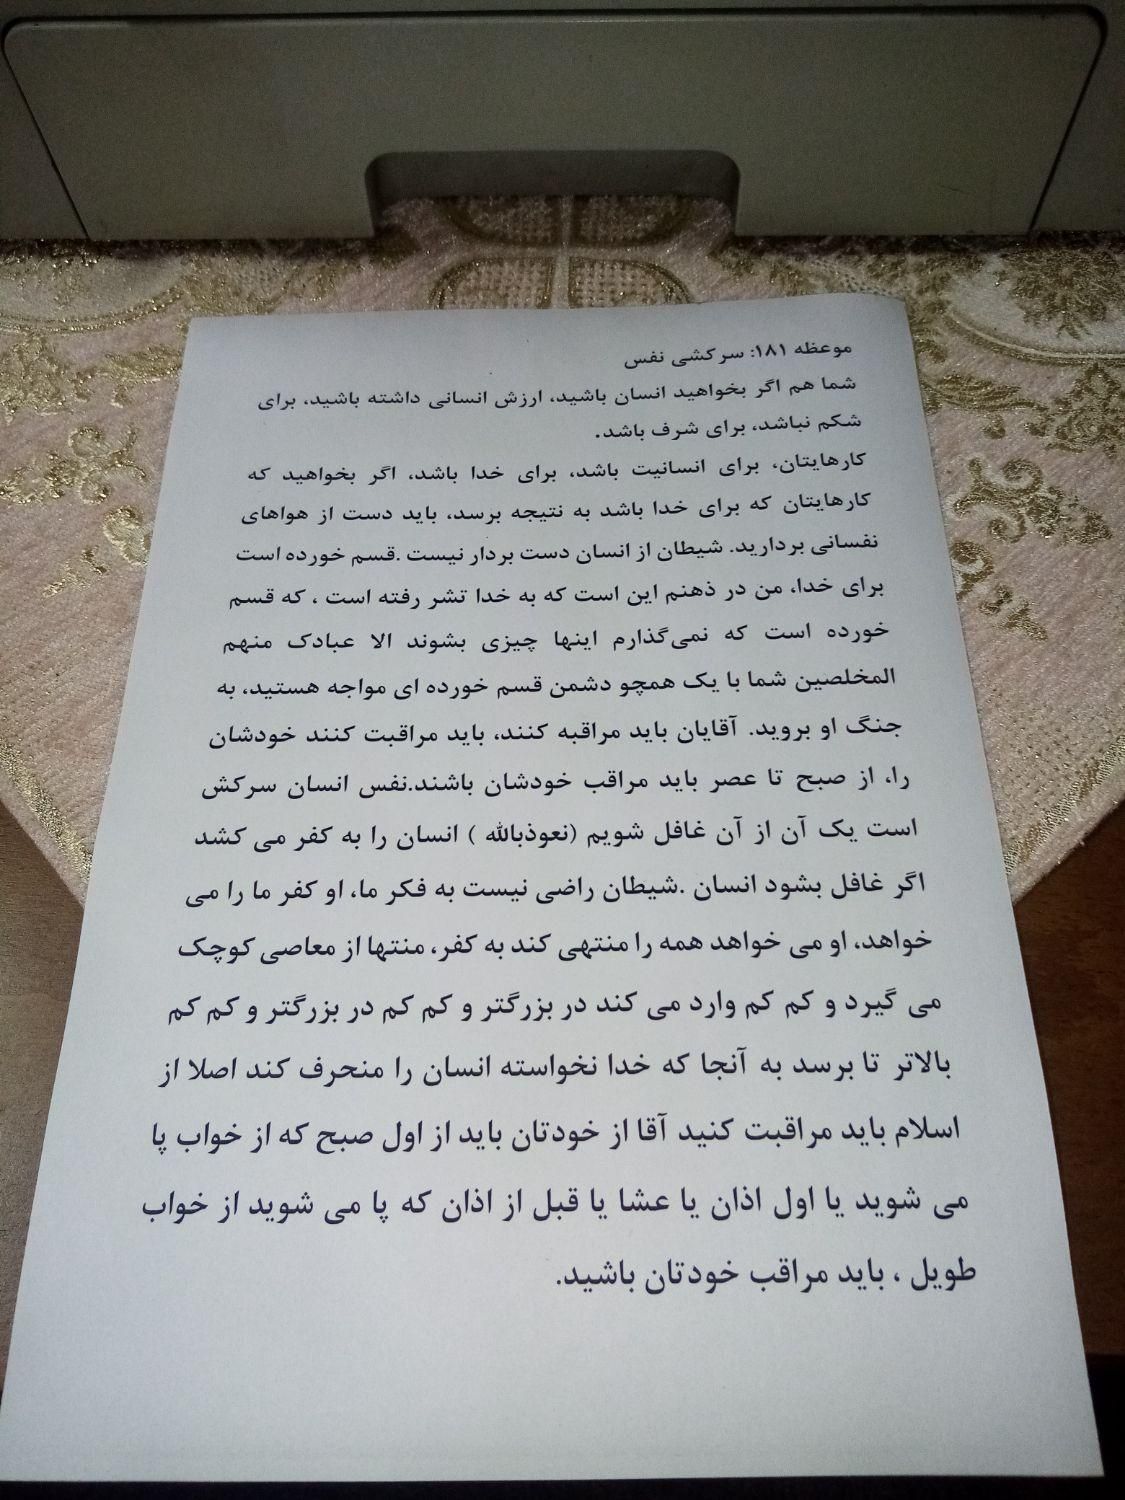 موعظه ۱۸۱: سرکشی نفس
شما هم اگر بخواهید انسان باشید، ارزش انسانی داشته باشید، برای
شکم نباشد، برای شرف باشد.
کارهایتان، برای انسانیت باشد، برای خدا باشد، اگر بخواهید که
کارهایتان که برای خدا باشد به نتیجه برسد، باید دست از هواهای
نفسانی بردارید. شیطان از انسان دست بردار نیست .قسم خورده است
برای خدا، من در ذهنم این است که به خدا تشر رفته است ، که قسم
خورده است که نمی‌گذارم اینها چیزی بشوند الا عبادک منهم
المخلصین شما با یک همچو دشمن قسم خورده ای مواجه هستید، به
جنگ او بروید. آقایان باید مراقبه کنند، باید مراقبت کنند خودشان
را، از صبح تا عصر باید مراقب خودشان باشند.نفس انسان سرکش
است یک آن از آن غافل شویم (نعوذبالله ) انسان را به کفر می کشد
اگر غافل بشود انسان .شیطان راضی نیست به فکر ما، او کفر ما را می
خواهد، او می خواهد همه را منتهی کند به کفر، منتها از معاصی کوچک
می گیرد و کم کم وارد می کند در بزرگتر و کم کم در بزرگتر و کم کم
بالاتر تا برسد به آنجا که خدا نخواسته انسان را منحرف کند اصلا از
اسلام باید مراقبت کنید آقا از خودتان باید از اول صبح که از خواب پا
می شوید یا اول اذان یا عشا یا قبل از اذان که پا می شوید از خواب
طویل ، باید مراقب خودتان باشید.